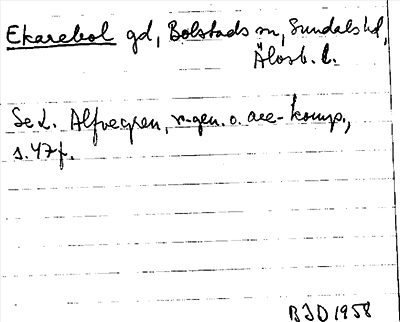 Ekarebol gd, Bolstads sn, Sundals hd,
Älvsb. l.
Se L. Alfvegren, r-gen. o. acc-komp.,
s. 47 f.
BJD 1958